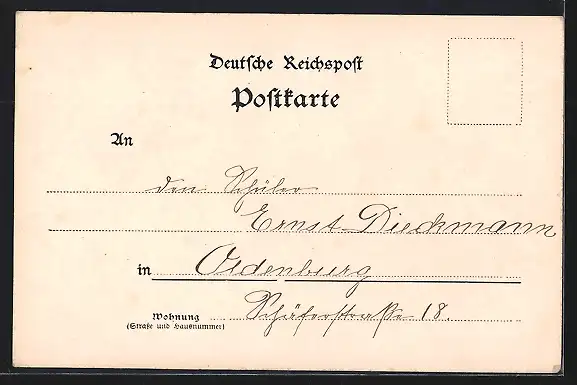 Deutsche Reichspost
Postkarte
An
den Schüler
Ernst Dieckmann
in Oldenburg
Wohnung Schäferstraße 18.
(Straße und Hausnummer)